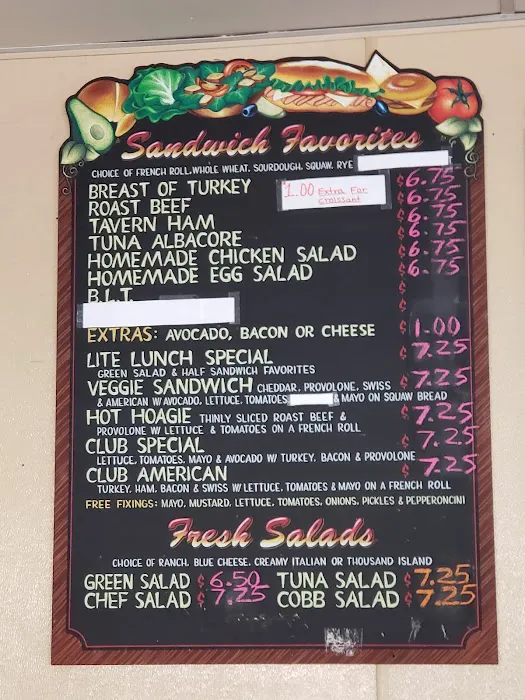 Sandwich Favorites
CHOICE OF FRENCH ROLL, WHOLE WHEAT, SOURDOUGH, SQUAW, RYE
BREAST OF TURKEY $6.75
1.00 Extra For
croissant
ROAST BEEF $6.75
TAVERN HAM $6.75
TUNA ALBACORE $6.75
HOMEMADE CHICKEN SALAD $6.75
HOMEMADE EGG SALAD $6.75
B.L.T. $
$
EXTRAS: AVOCADO, BACON OR CHEESE $1.00
LITE LUNCH SPECIAL $7.25
GREEN SALAD & HALF SANDWICH FAVORITES
VEGGIE SANDWICH CHEDDAR, PROVOLONE, SWISS $7.25
& AMERICAN W/AVOCADO, LETTUCE, TOMATOES & MAYO ON SQUAW BREAD
HOT HOAGIE THINLY SLICED ROAST BEEF & $7.25
PROVOLONE W/ LETTUCE & TOMATOES ON A FRENCH ROLL
CLUB SPECIAL $7.25
LETTUCE, TOMATOES, MAYO & AVOCADO W/ TURKEY, BACON & PROVOLONE
CLUB AMERICAN $7.25
TURKEY, HAM, BACON & SWISS W/ LETTUCE, TOMATOES & MAYO ON A FRENCH ROLL
FREE FIXINGS: MAYO, MUSTARD, LETTUCE, TOMATOES, ONIONS, PICKLES & PEPPERONCINI
Fresh Salads
CHOICE OF RANCH, BLUE CHEESE, CREAMY ITALIAN OR THOUSAND ISLAND
GREEN SALAD $6.50 TUNA SALAD $7.25
CHEF SALAD $7.25 COBB SALAD $7.25